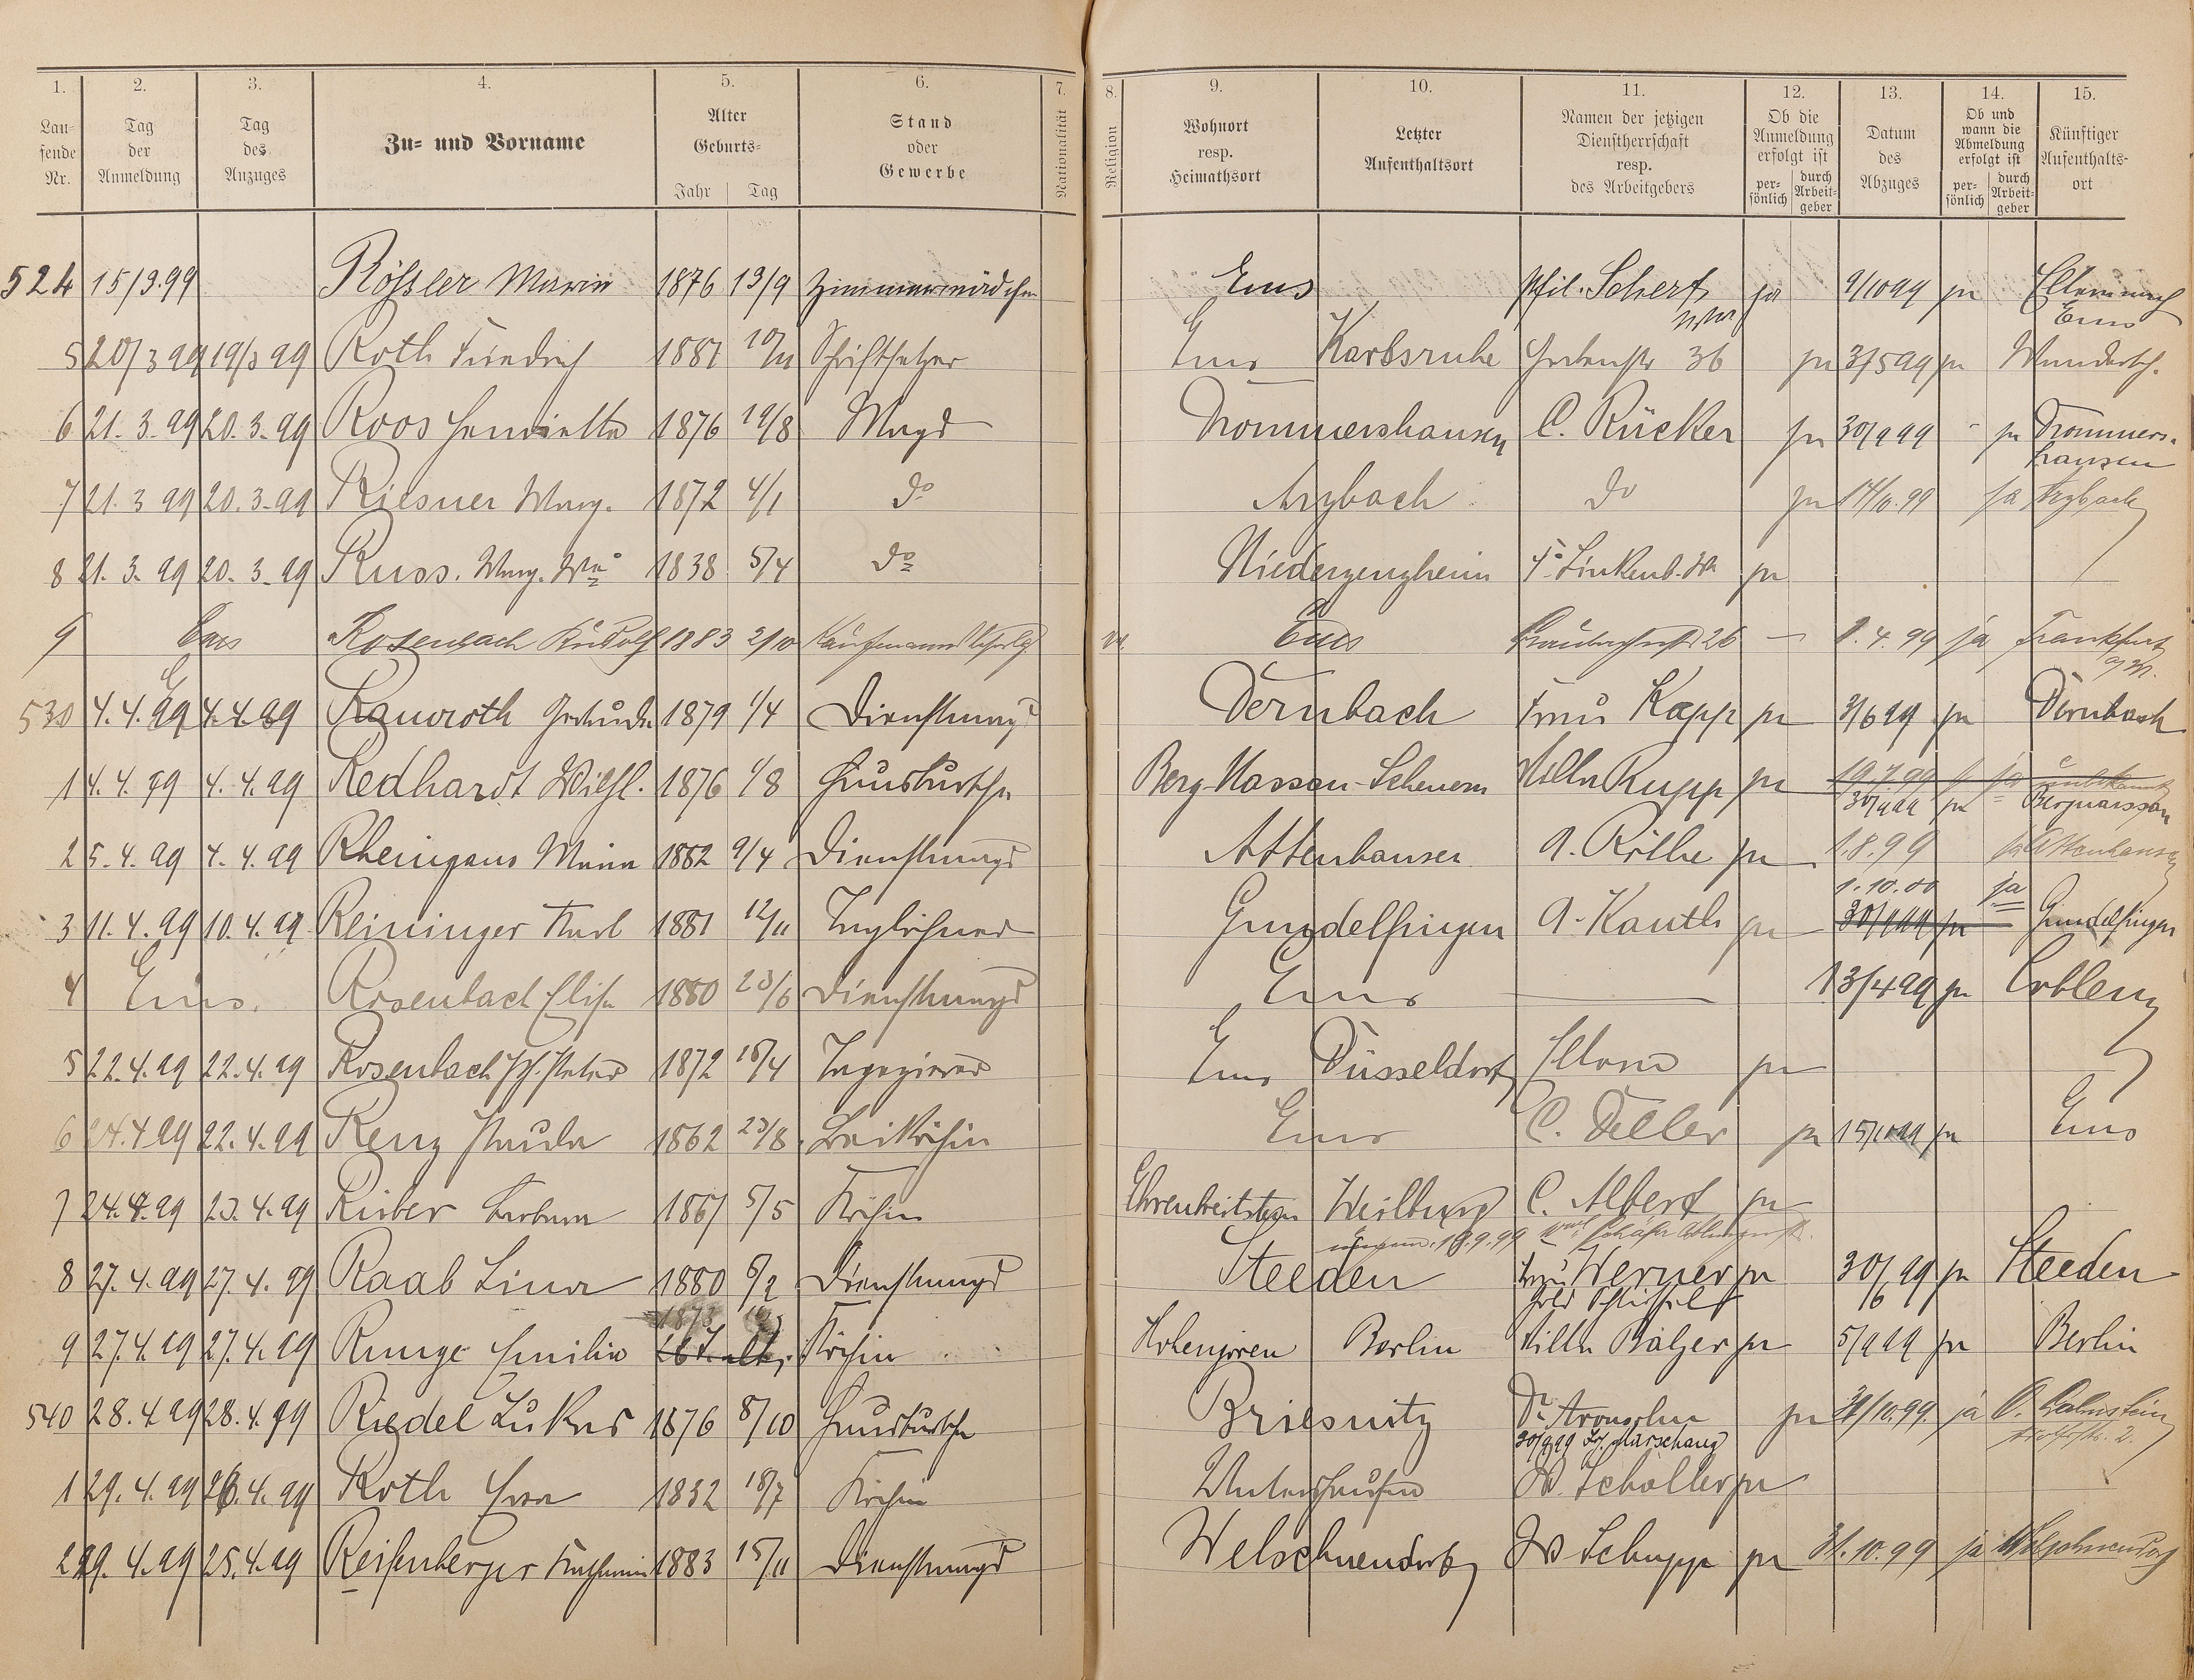 1. 2. 3. 4. 5. 6. 7. 8. 9. 10. 11. 12. 13. 14. 15.
Laufende Nr. Tag der Anmeldung Tag des Anzuges Zu- und Vorname Alter Geburts- Jahr Tag Stand oder Gewerbe Nationalität Religion Wohnort resp. Heimathsort Letzter Aufenthaltsort Namen der jetzigen Dienstherrschaft resp. des Arbeitgebers Ob die Anmeldung erfolgt ist persönlich durch Arbeitgeber Datum des Abzuges Ob und wann die Abmeldung erfolgt ist persönlich durch Arbeitgeber Künftiger Aufenthaltsort
524 15/3.99 Rößler Marie 1876 13/9 Zimmermädchen Ems Phil. Schert ja 9/10 99 ja
Ems
5 20/3 99 19/3 99 Roth Friedrich 1881 10/11 Schriftsetzer Ems Karlsruhe 36 ja 3/5 99 ja
6 21.3.99 20.3.99 Roos Henriette 1876 19/8 Magd Frommershausen C. Rücker ja 30/9 99 ja Frommershausen
7 21.3 99 20.3.99 Riesner Marg. 1872 4/1 do Arzbach do ja 14/10.99 ja Arzbach
8 21.3.99 20.3.99 Russ. Marg. Ww 1838 5/4 do F. Linkenb. ja
9 Ems Rosenbach Rudolf 1883 2/10 Kaufmannslehrlg. Ems 26 — 1.4.99 ja Frankfurt a/M.
530 4.4.99 4.4.99 Ranroth Gertrude 1879 1/4 Dienstmagd Dernbach Frau Kapp ja 3/6 99 ja Dernbach
1 4.4.99 4.4.99 Redhardt Wilh. 1876 1/8 Hausbursche Berg-Nassau-Scheuern Rupp ja 19.7.99 ja unbekannt
30/9 99 ja Bergnassau
2 5.4.99 4.4.99 Rheingans Maria 1882 9/4 Dienstmagd Attenhausen A. Röthe ja 1.8.99 ja Attenhausen
1.10.00 ja
3 11.4.99 10.4.99 Reininger Karl 1881 12/11 Taglöhner Gundelfingen A. Kauth ja 30/9 99 ja Gundelfingen
4 Ems. Rosenbach Elise 1880 23/6 Dienstmagd Ems — 13/4 99 ja Coblenz
5 22.4.99 22.4.99 Rosenbach Jph. Peter 1872 18/4 Tapezierer Ems Düsseldorf ja
6 24.4 99 22.4.99 Renz Paula 1862 23/8 Beiköchin Ems C. Deller ja 15/10 99 ja Ems
7 24.4.99 23.4.99 Barbara 1867 5/5 Köchin Ehrenbreitstein Weilburg C. Albert ja
18.9.99
8 27.4.99 27.4.99 Raab Lina 1880 6/2 Dienstmagd Steeden Frau Werner ja 30/6 99 ja Steeden
1873
9 27.4.99 27.4.99 Runge Emilie 26 J. alt, Köchin Berlin Villa Balzer ja 5/9 99 ja Berlin
540 28.4.99 28.4.99 Riedel Lukas 1876 8/10 Hausbursche Briesnitz Dr. Aronsohn ja 31/10.99. ja O. Lahnstein
30/9 99
1 29.4.99 26.4.99 Roth Eva 1832 18/7 Köchin W. Scholler ja
2 29.4.99 25.4.99 Reifenberger Katharina 1883 15/11 Dienstmagd Welschneudorf Schupp ja 31.10.99 ja Welschneudorf